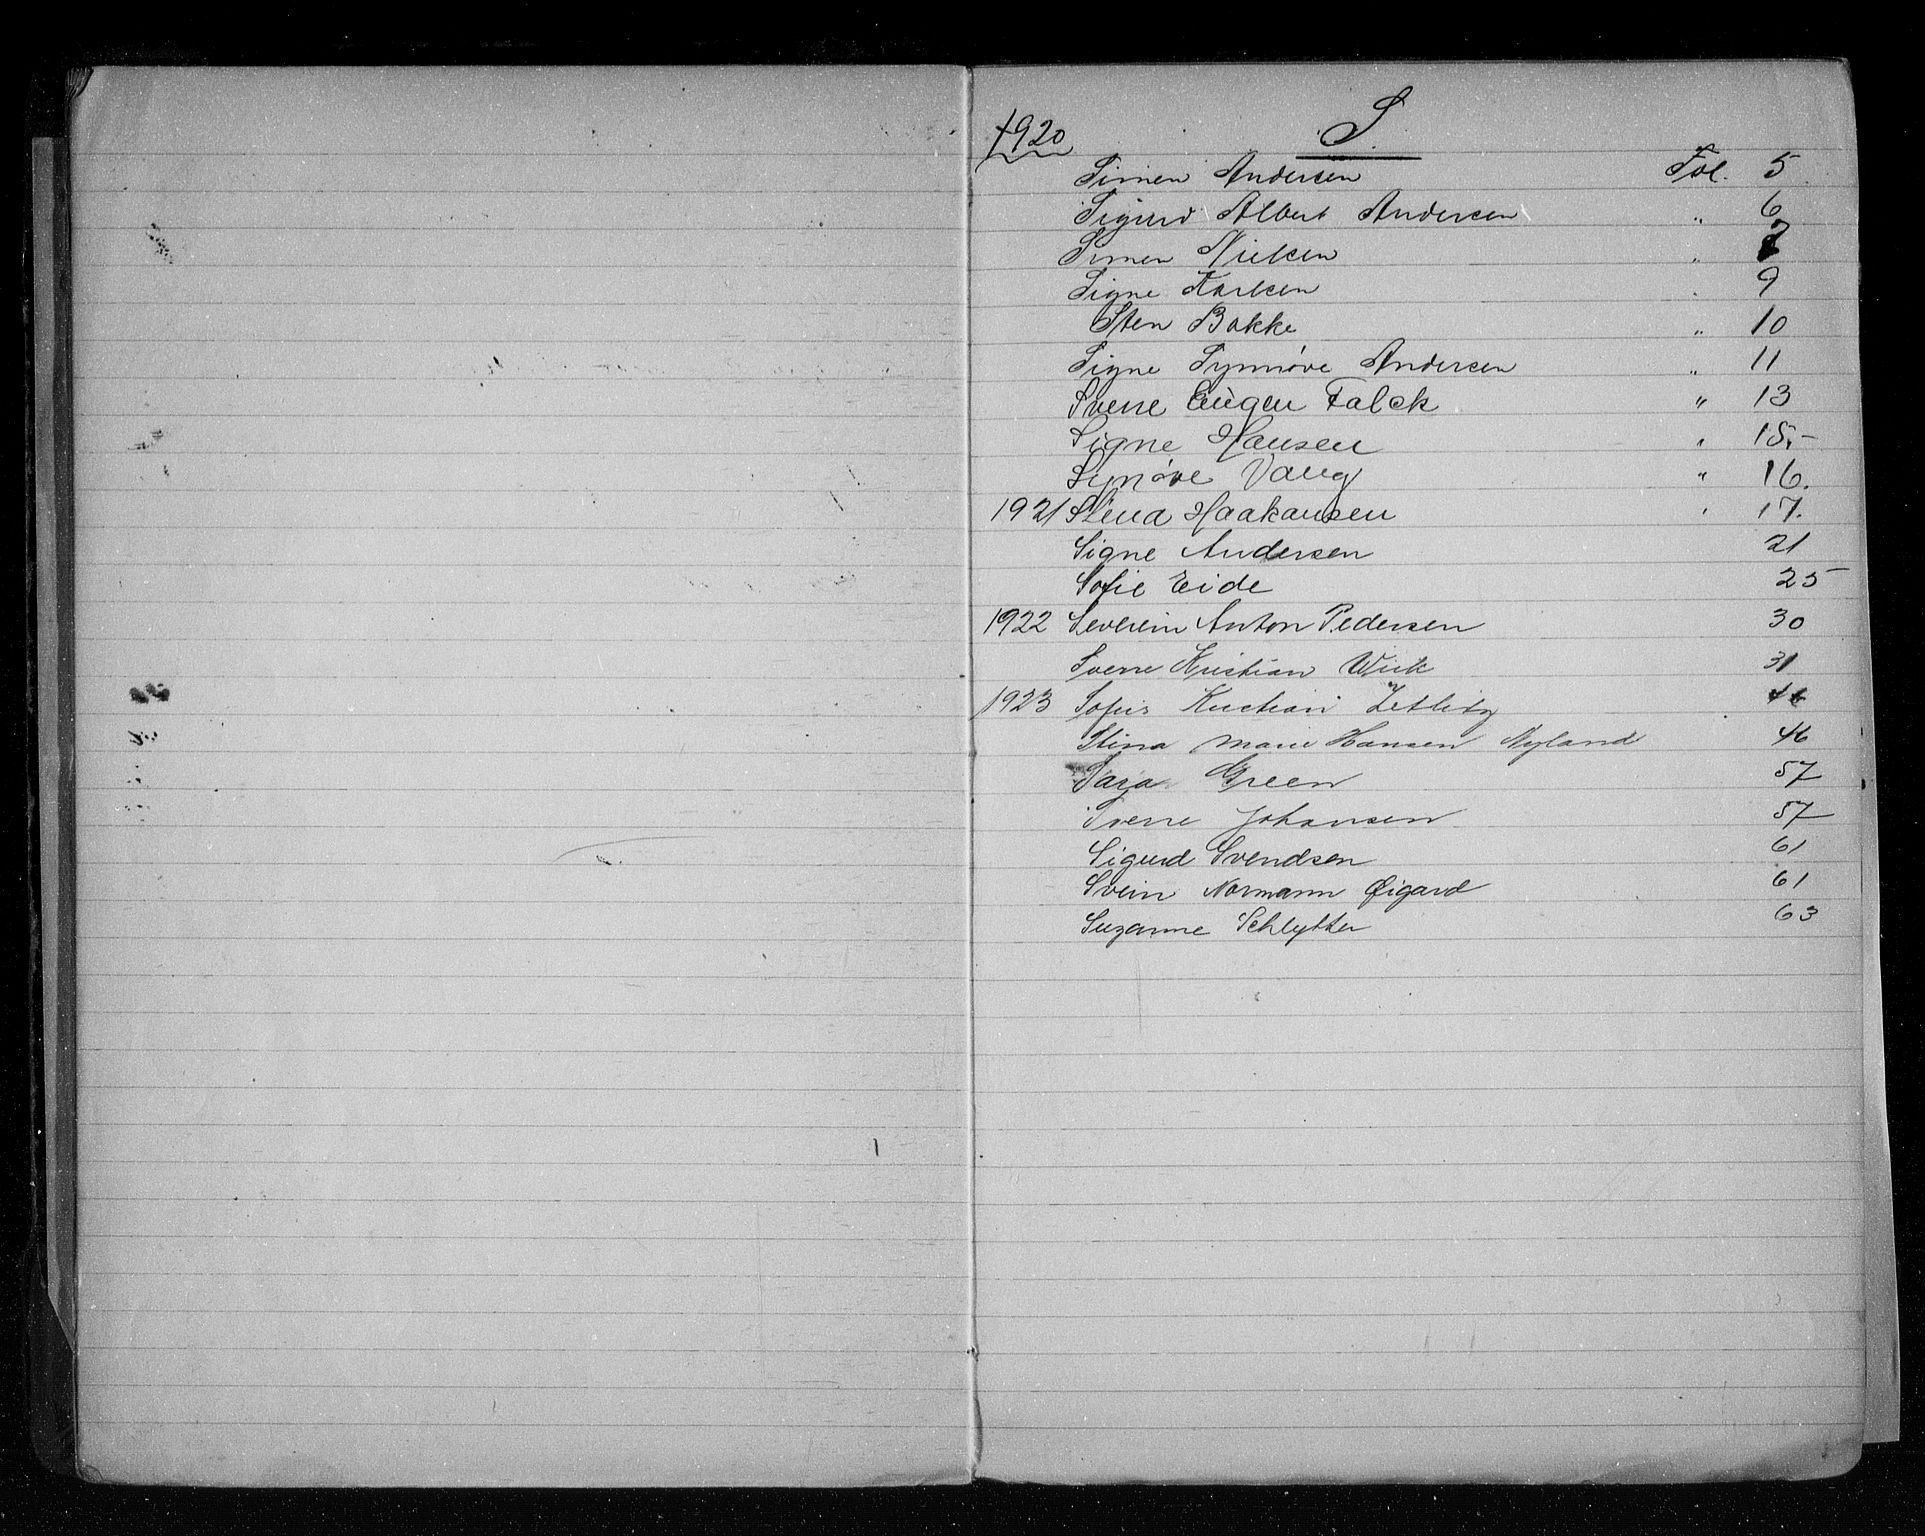 1920 S.
Simen Andersen Fol. 5
Sigurd Albert Andersen " 6
Simen Nielsen " 7
Signe Karlsen " 9
Sten Bakke " 10
Signe Synnøve Andersen " 11
Sverre Eugen Falck " 13
Signe Hansen " 15.-
Synøve Vang " 16.
1921 Stena Haakansen " 17.
Signe Andersen 21
Sofie Eide 25
1922 Severin Anton Pedersen 30
Sverre Kristian Wiik 31
1923 Sofus Kristian Zetlitz
Stina Marie Hansen Nyland 46
Sara Green 57
Sverre Johansen 57
Sigurd Svendsen 61
Svein Normann Øigard 61
Suzanne Schlytter 63